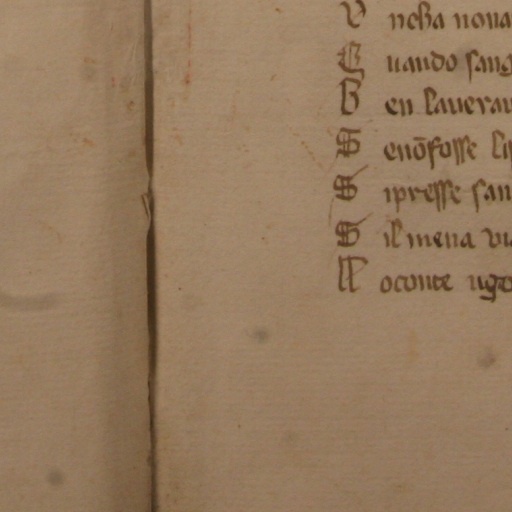 V neſta noua
Q uando ſang
B en lauerau
S enōfoſſe liſ
S ipreſſe ſan
S il mena vi
LL oconte ugo